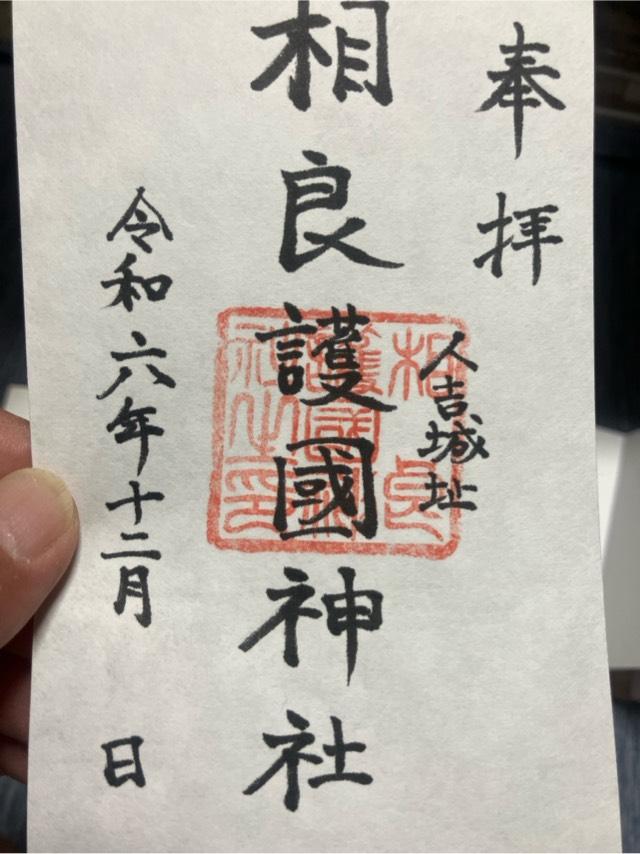 奉拝
人吉城址
相良護國神社
令和六年十二月 日
相良
護國神
社之印